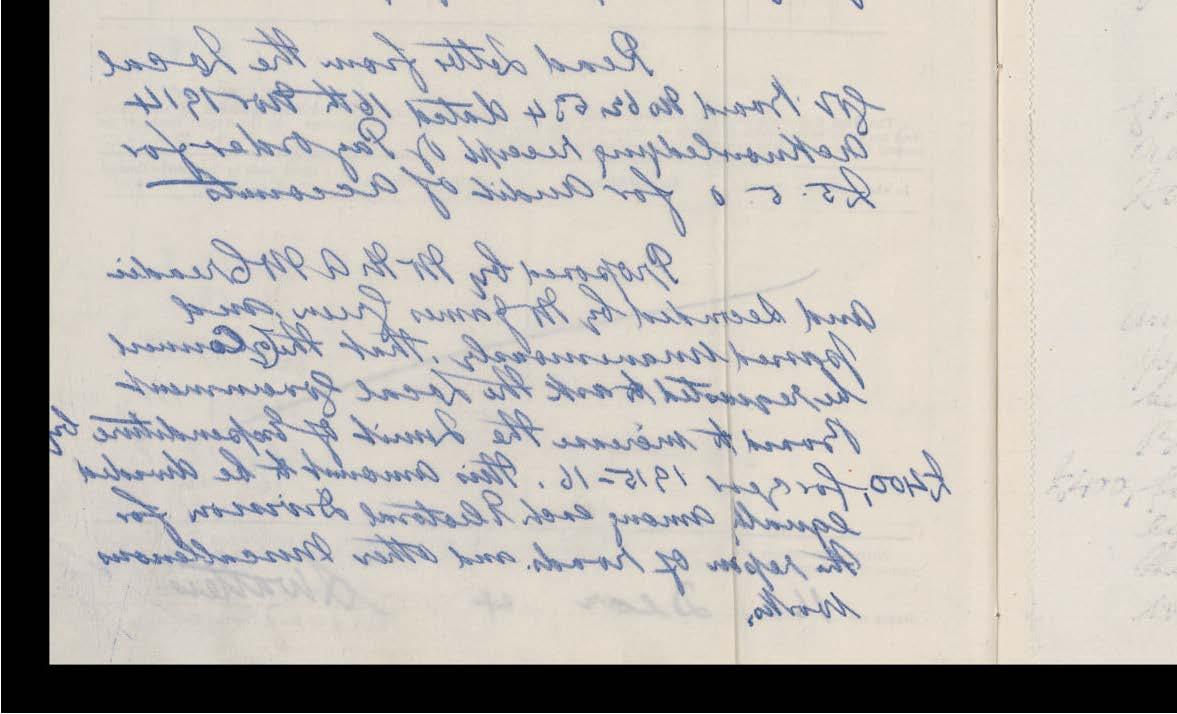 Read letter from the Local
Gov. Board No 62554 dated 16th Nov 1914
acknowledging receipt of Pay Order for
£5. 5. 0 for audit of accounts
Proposed by Mr H A McCreadie
and seconded by Mr James Green and
passed unanimously, that the Council
be requested to ask the Local Government
Board to increase the Limit of Expenditure by
£400, for year 1915-16. this amount to be divided
equally among each Electoral Division for
the repair of roads and other miscellaneous
Works.